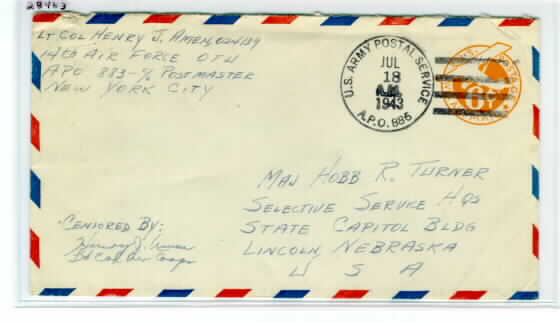 28463
LT COL HENRY J. AMEN, 024139
14th AIR FORCE OTU
APO 883 - % POSTMASTER
NEW YORK CITY
U.S. ARMY POSTAL SERVICE
JUL
18
A.M.
1943
A.P.O. 886
6¢
MAJ HOBB R. TURNER
SELECTIVE SERVICE HQS
STATE CAPITOL BLDG
LINCOLN, NEBRASKA
U S A
CENSORED BY:
Henry J. Amen
Lt Col Air Corps